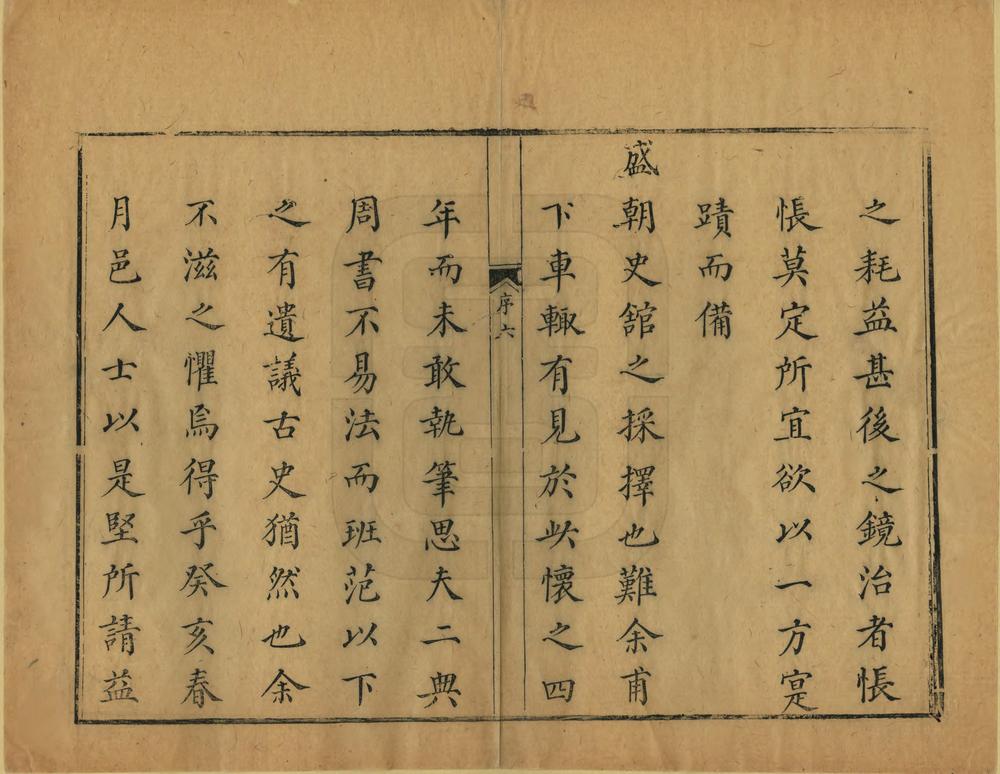 之耗益甚後之鏡治者悵
悵莫定所宜欲以一方寔
蹟而備
盛朝史舘之採擇也難余甫
下車輙有見於此懷之四
序六
年而未敢執筆思夫二典
周書不易法而班范以下
之有遺議古史猶然也余
不滋之懼焉得乎癸亥春
月邑人士以是堅所請益